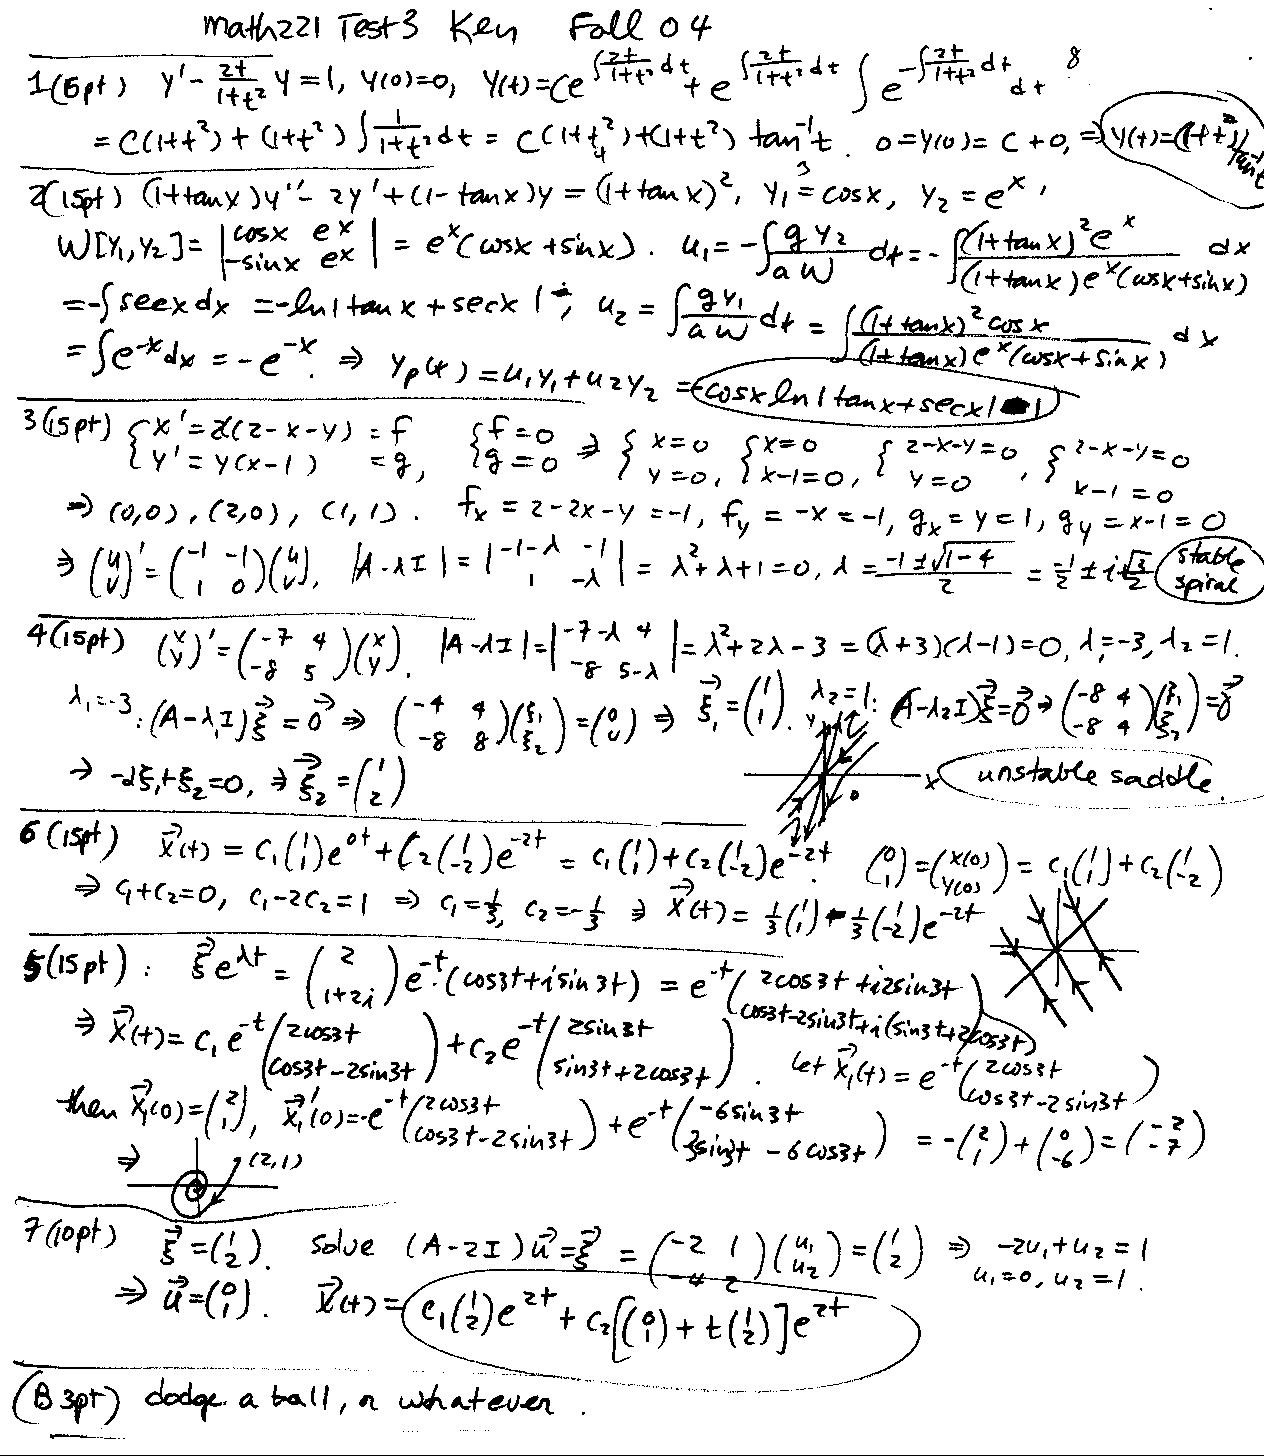 Math221 Test3 Key Fall 04
1(15pt) y' - 2t/(1+t²) y = 1, y(0)=0, y(t)=Ce^{∫2t/(1+t²) dt} + e^{∫2t/(1+t²) dt} ∫ e^{-∫2t/(1+t²) dt} dt 8
= C(1+t²) + (1+t²) ∫ 1/(1+t²) dt = C(1+t²) + (1+t²) tan⁻¹t. 0=y(0)= C+0, ⇒ y(t)=(1+t²) tan⁻¹t
4 3 2
2(15pt) (1+tanx)y'' - 2y' + (1-tanx)y = (1+tanx)², y₁ = cosx, y₂ = eˣ,
W[y₁,y₂] = |cosx eˣ; -sinx eˣ| = eˣ(cosx+sinx). u₁ = -∫ g y₂/(a W) dt = -∫ (1+tanx)² eˣ/((1+tanx)eˣ(cosx+sinx)) dx
= -∫secx dx = -ln|tanx+secx|, u₂ = ∫ g y₁/(a W) dt = ∫ (1+tanx)² cosx/((1+tanx)eˣ(cosx+sinx)) dx
= ∫e⁻ˣdx = -e⁻ˣ. ⇒ yp(x) = u₁y₁+u₂y₂ = -cosx ln|tanx+secx| - 1
3(15pt) {x' = x(2-x-y) = f; y' = y(x-1) = g, {f=0; g=0 ⇒ {x=0; y=0, {x=0; x-1=0, {2-x-y=0; y=0, {2-x-y=0; x-1=0
⇒ (0,0), (2,0), (1,1). fx = 2-2x-y = -1, fy = -x = -1, gx = y = 1, gy = x-1 = 0
⇒ (u; v)' = (-1 -1; 1 0)(u; v), |A-λI| = |-1-λ -1; 1 -λ| = λ²+λ+1=0, λ = (-1±√(1-4))/2 = -1/2 ± i√3/2 stable spiral
4(15pt) (x; y)' = (-7 4; -8 5)(x; y). |A-λI| = |-7-λ 4; -8 5-λ| = λ²+2λ-3 = (λ+3)(λ-1)=0, λ₁=-3, λ₂=1.
λ₁=-3: (A-λ₁I)ξ⃗ = 0⃗ ⇒ (-4 4; -8 8)(ξ₁; ξ₂) = (0; 0) ⇒ ξ⃗₁ = (1; 1). λ₂=1: (A-λ₂I)ξ⃗ = 0⃗ ⇒ (-8 4; -8 4)(ξ₁; ξ₂) = 0⃗
⇒ -2ξ₁+ξ₂=0, ⇒ ξ⃗₂ = (1; 2) y x unstable saddle.
6(15pt) x⃗(t) = C₁(1; 1)e^{0t} + C₂(1; -2)e^{-2t} = C₁(1; 1) + C₂(1; -2)e^{-2t}. (0; 1) = (x(0); y(0)) = C₁(1; 1) + C₂(1; -2)
⇒ C₁+C₂=0, C₁-2C₂=1 ⇒ C₁=1/3, C₂=-1/3 ⇒ x⃗(t) = 1/3(1; 1) - 1/3(1; -2)e^{-2t}
5(15pt): ξ⃗e^{λt} = (2; 1+2i)e^{-t}(cos3t+isin3t) = e^{-t}(2cos3t+i2sin3t; cos3t-2sin3t+i(sin3t+2cos3t))
⇒ x⃗(t) = C₁e^{-t}(2cos3t; cos3t-2sin3t) + C₂e^{-t}(2sin3t; sin3t+2cos3t). Let x⃗₁(t) = e^{-t}(2cos3t; cos3t-2sin3t)
then x⃗₁(0) = (2; 1), x⃗₁'(0) = -e^{-t}(2cos3t; cos3t-2sin3t) + e^{-t}(-6sin3t; 3sin3t-6cos3t) = -(2; 1)+(0; -6) = (-2; -7)
⇒ (2,1)
7(10pt) ξ⃗ = (1; 2). solve (A-2I)u⃗ = ξ⃗ = (-2 1; -4 2)(u₁; u₂) = (1; 2) ⇒ -2u₁+u₂=1
u₁=0, u₂=1.
⇒ u⃗ = (0; 1). x⃗(t) = C₁(1; 2)e^{2t} + C₂[(0; 1) + t(1; 2)]e^{2t}
(B 3pt) dodge a ball, or whatever.